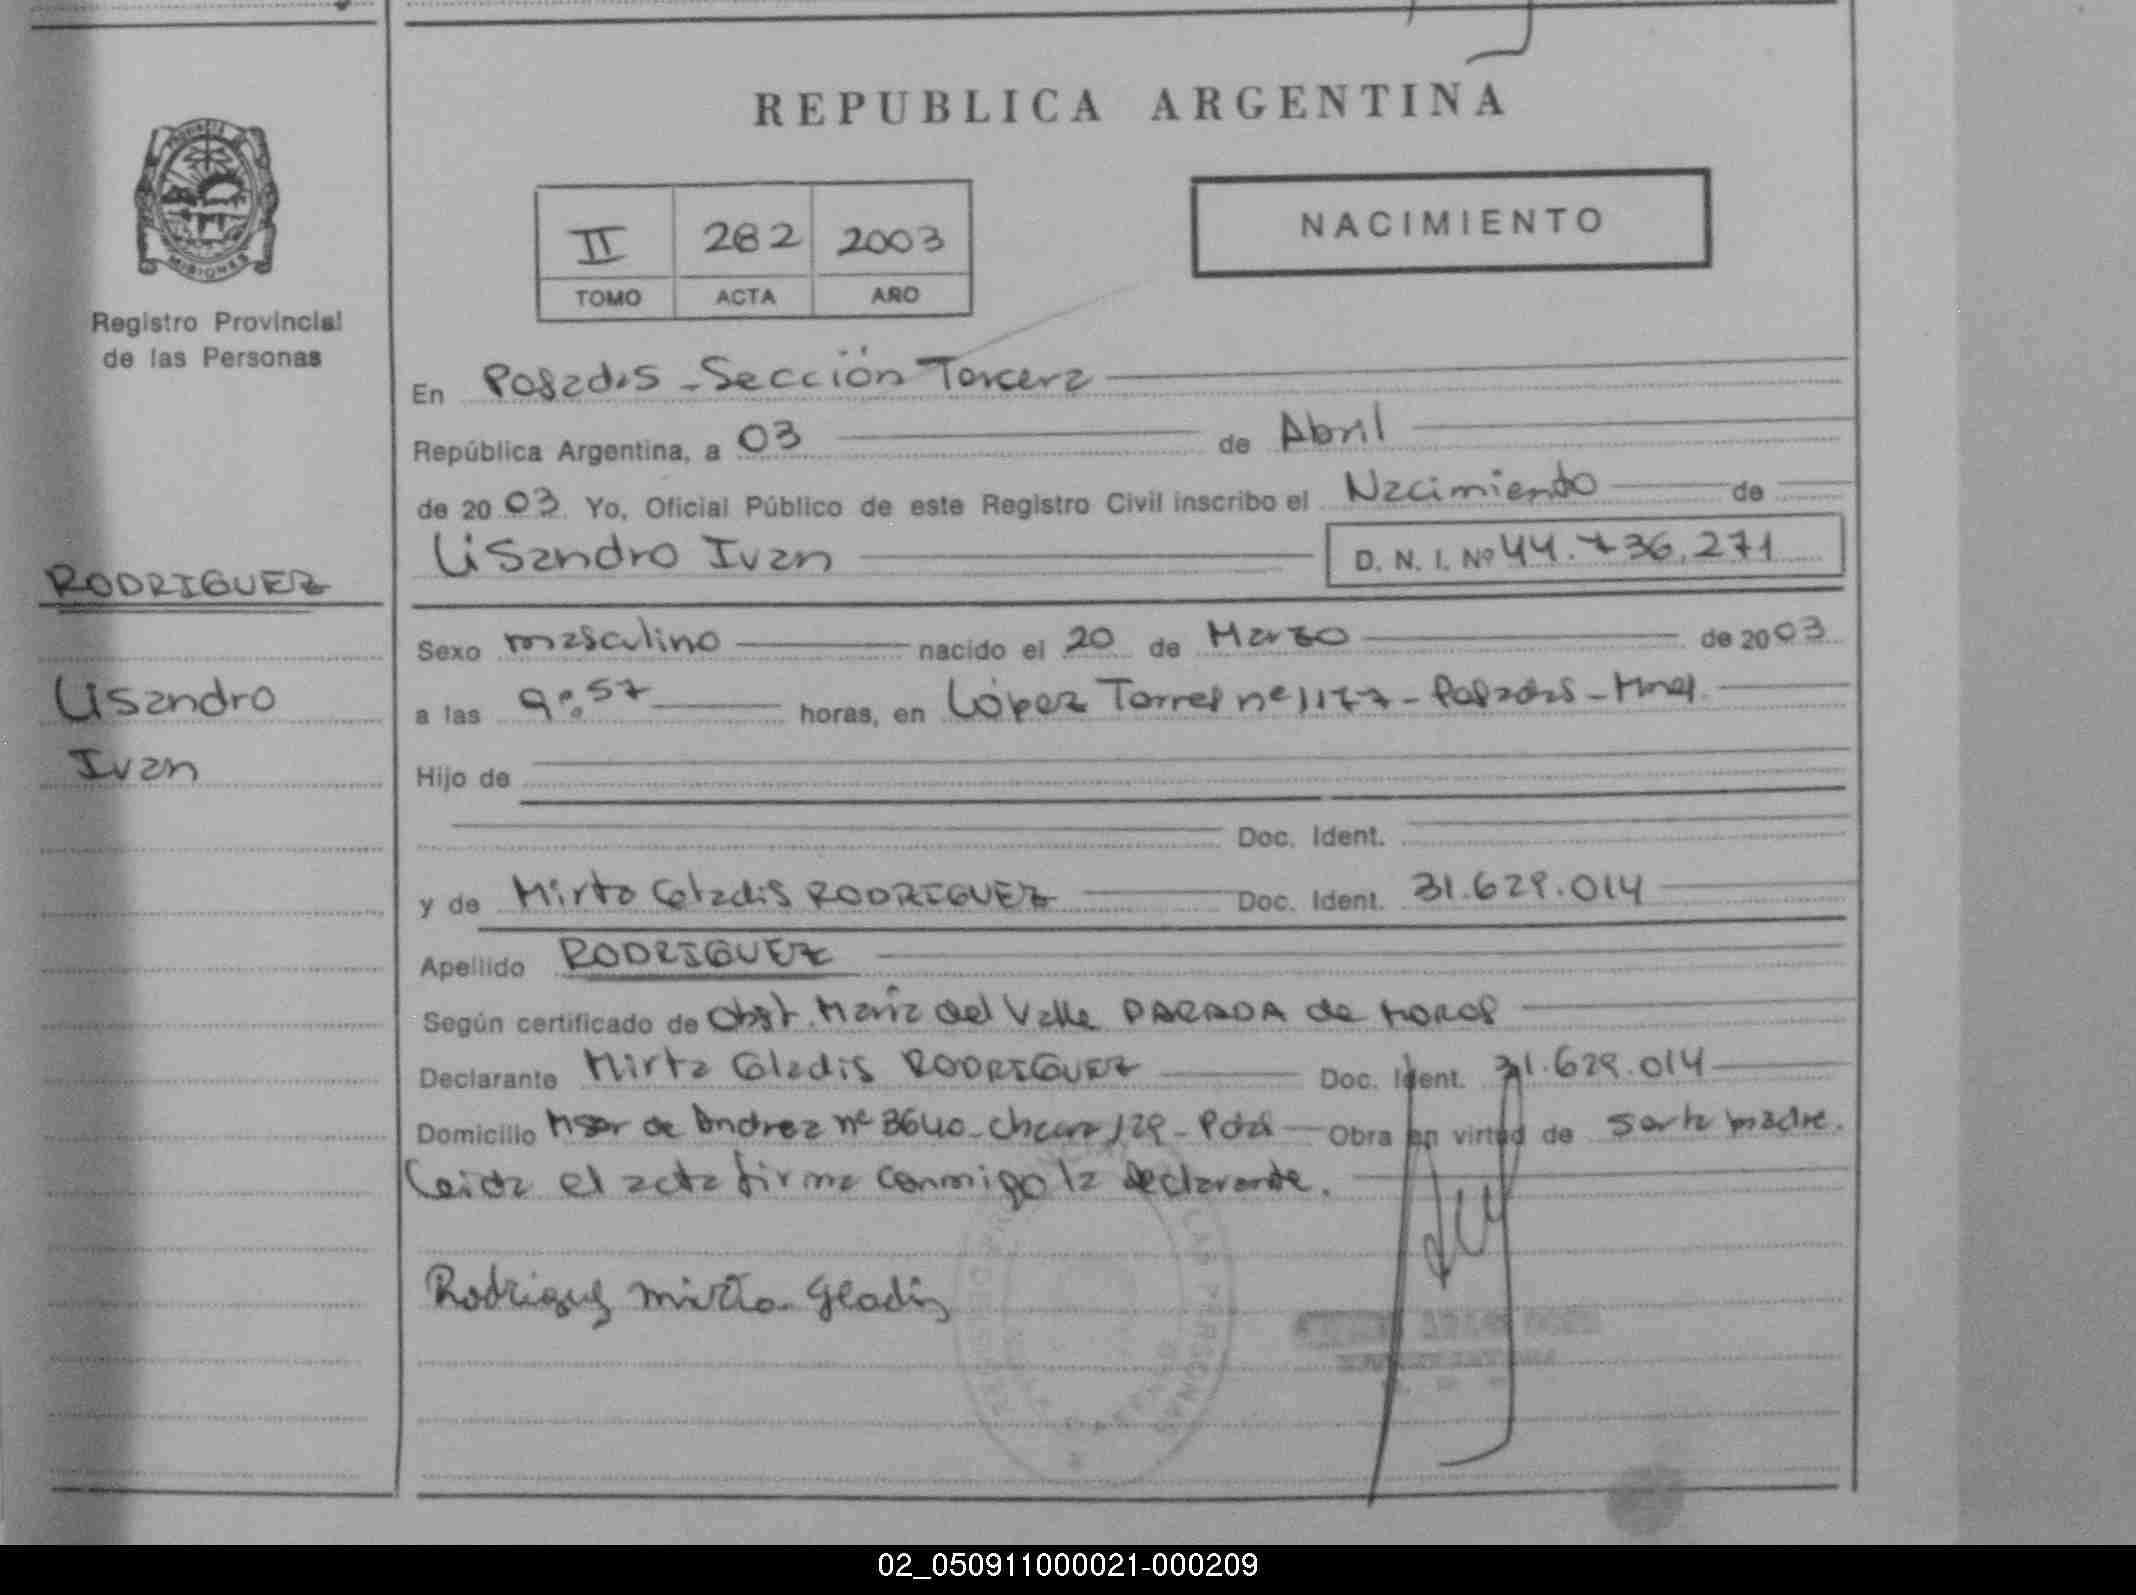 REPUBLICA ARGENTINA
NACIMIENTO
II 282 2003
TOMO ACTA AÑO
MISIONES
Registro Provincial
de las Personas
En Posadas - Sección Tercera
República Argentina, a 03 de Abril
de 2003 Yo, Oficial Público de este Registro Civil inscribo el Nacimiento de
Lisandro Ivan D. N. I. Nº 44.736.271
RODRIGUEZ
Lisandro
Ivan
Sexo masculino nacido el 20 de Marzo de 2003
a las 9:57 horas, en López Torres nº 1177 - Posadas - Mnes.
Hijo de
Doc. Ident.
y de Mirta Gladis RODRIGUEZ Doc. Ident. 31.629.014
Apellido RODRIGUEZ
Según certificado de Obst. María del Valle PARADA de MOROS
Declarante Mirta Gladis RODRIGUEZ Doc. Ident. 31.629.014
Domicilio de nº 3640 - 129 - Obra en virtud de ser la madre.
Leída el acta firma conmigo la declarante.
Rodriguez Mirta Gladis
LAS PERSONAS
02_050911000021-000209